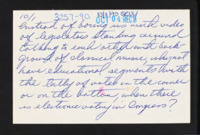 10/1
3257-90
OCT 04 REC'D
Instead of boring us with video
of legislators standing around
talking to each other with back-
ground of classical music, why not
have educational segments both
the tally of votes in the
or on the bottom, also there
is electronic voting in Congress?